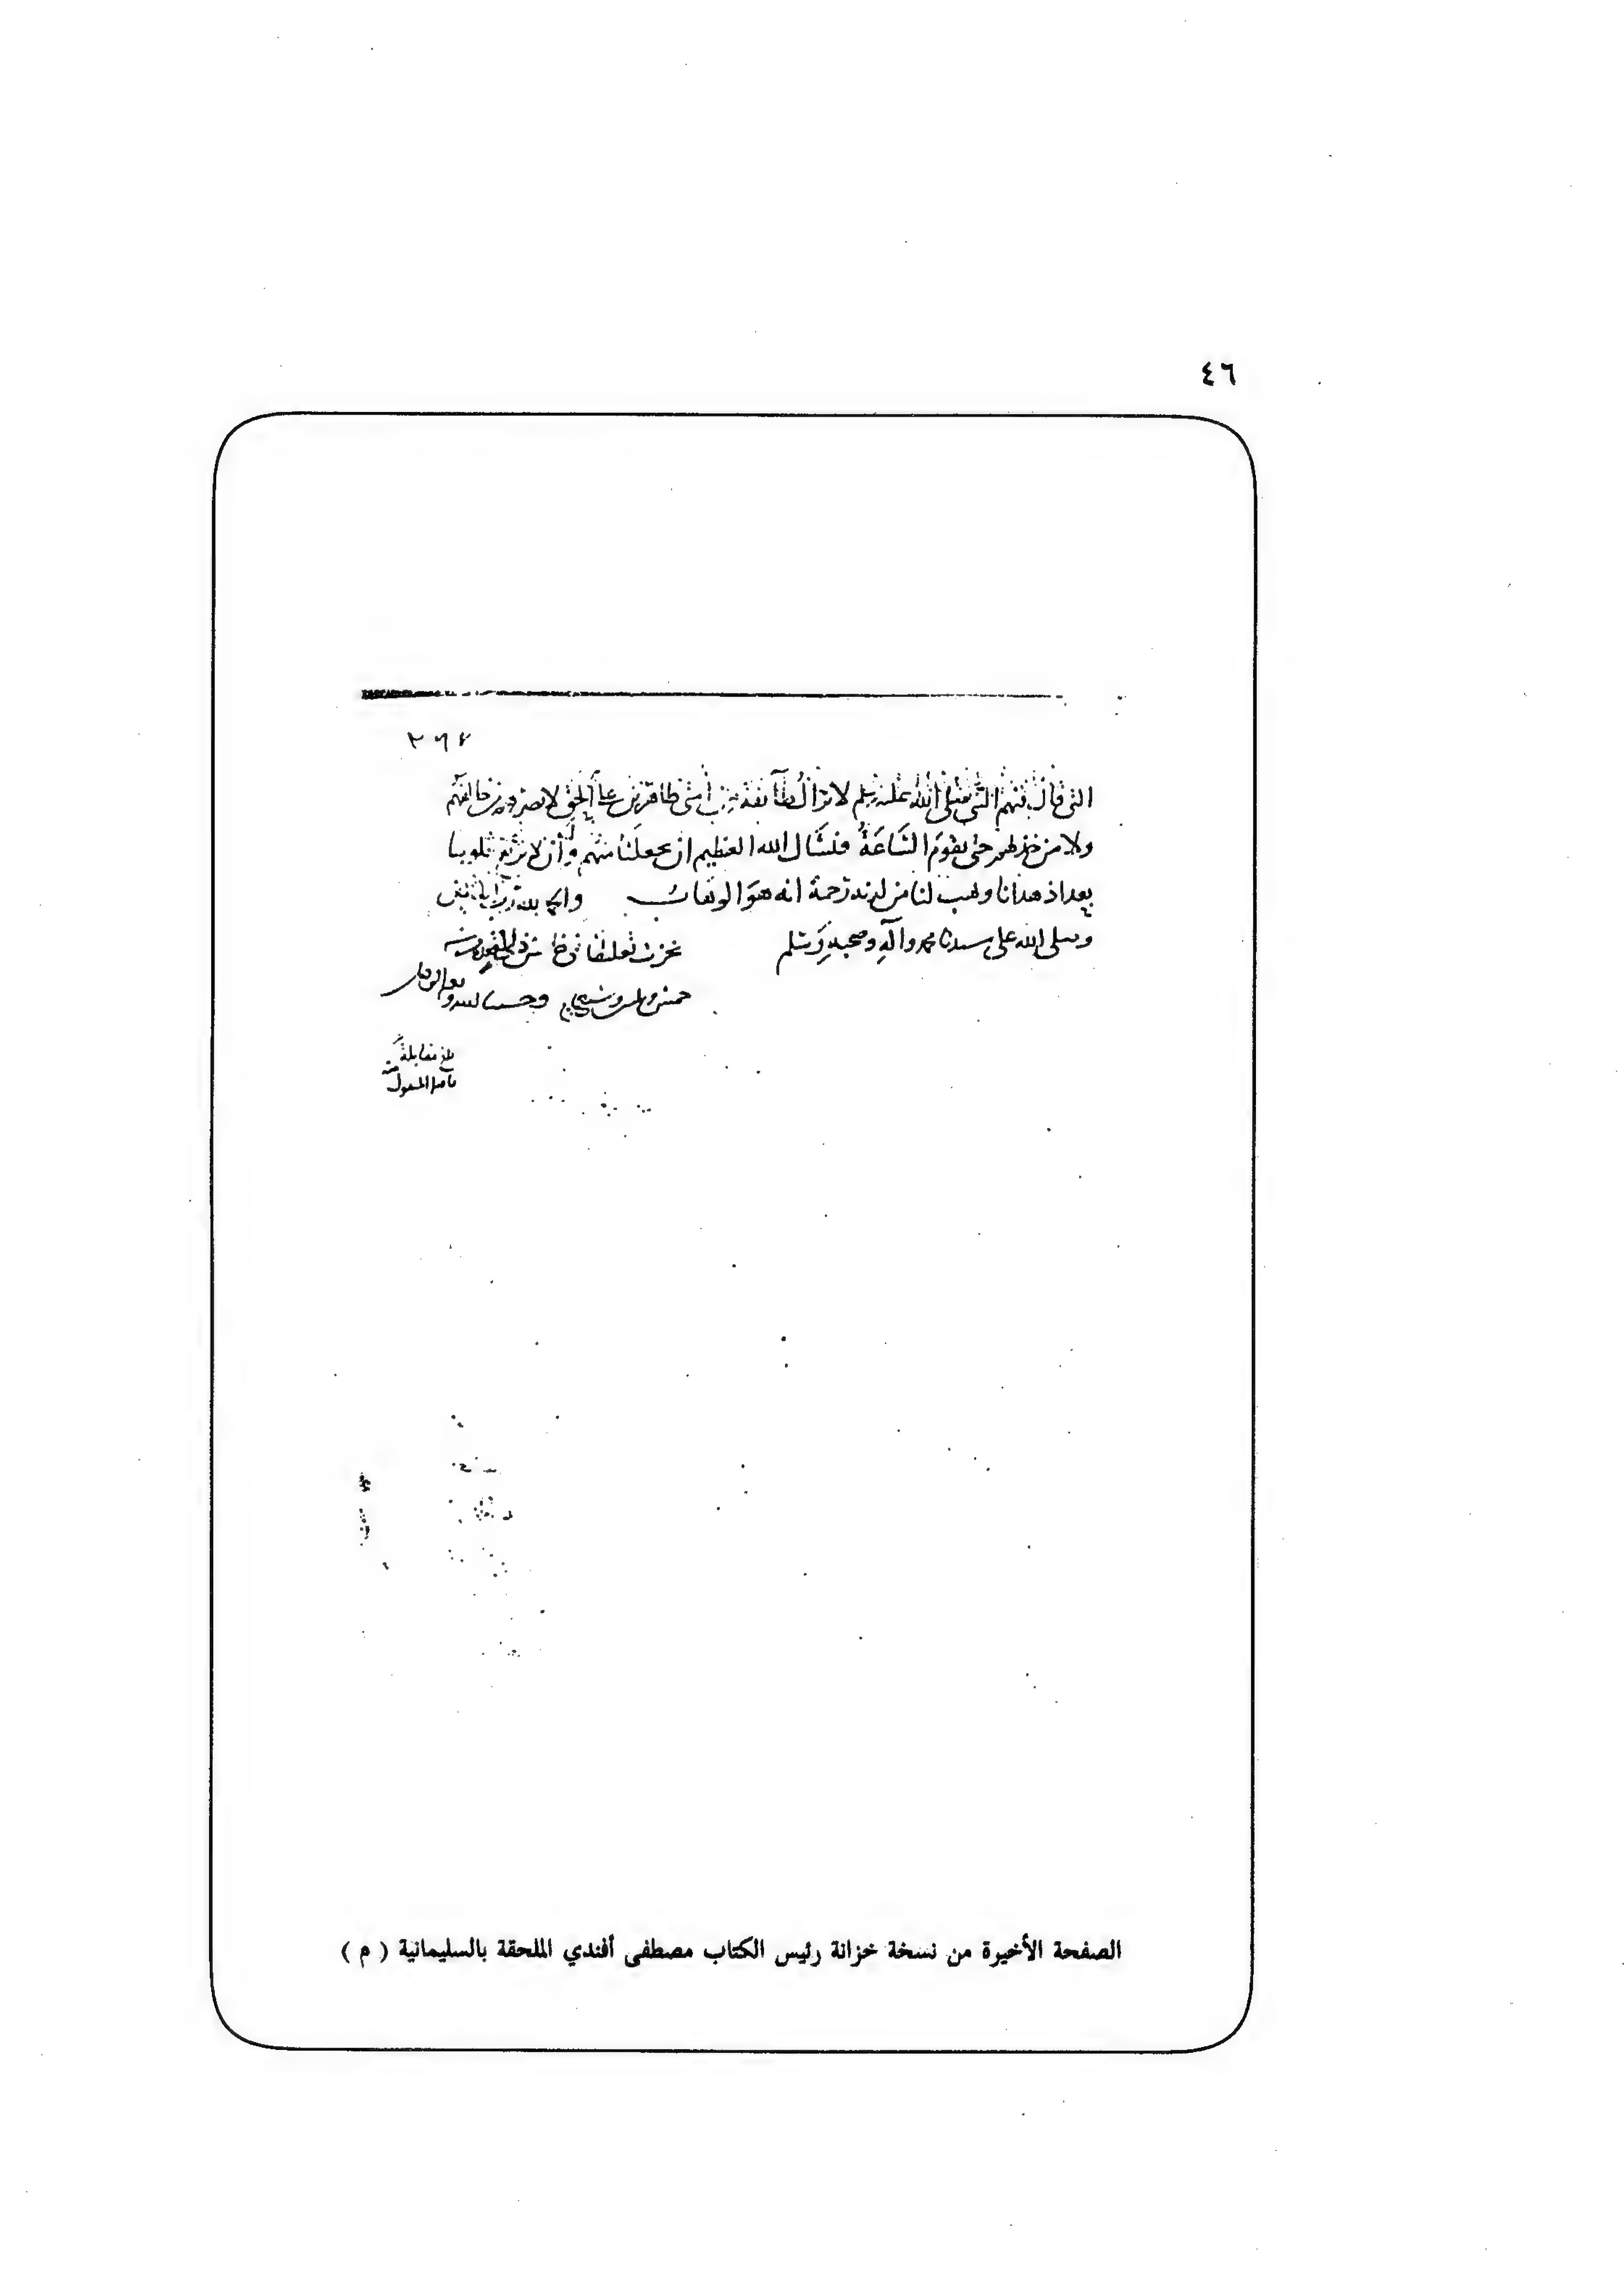 ٤٦
٢٦٤
التى قال فيهم النبى صلى الله عليه وسلم لا تزال طائفة من أمتى ظاهرين على الحق لا يضرهم من خالفهم
ولا من خذلهم حتى تقوم الساعة فنسأل الله العظيم ان يجعلنا منهم وأن لا يزيغ قلوبنا
بعد اذ هدانا وهب لنا من لدنه رحمة انه هو الوهاب
وصلى الله على سيدنا محمد وآله وصحبه وسلم نجزت تعليقا فى
خمس وثلاثين وحسبنا الله ونعم الوكيل
بلغ مقابلة
بأصله المنقول منه
الصفحة الأخيرة من نسخة خزانة رئيس الكتاب مصطفى أفندي الملحقة بالسليمانية ( م )